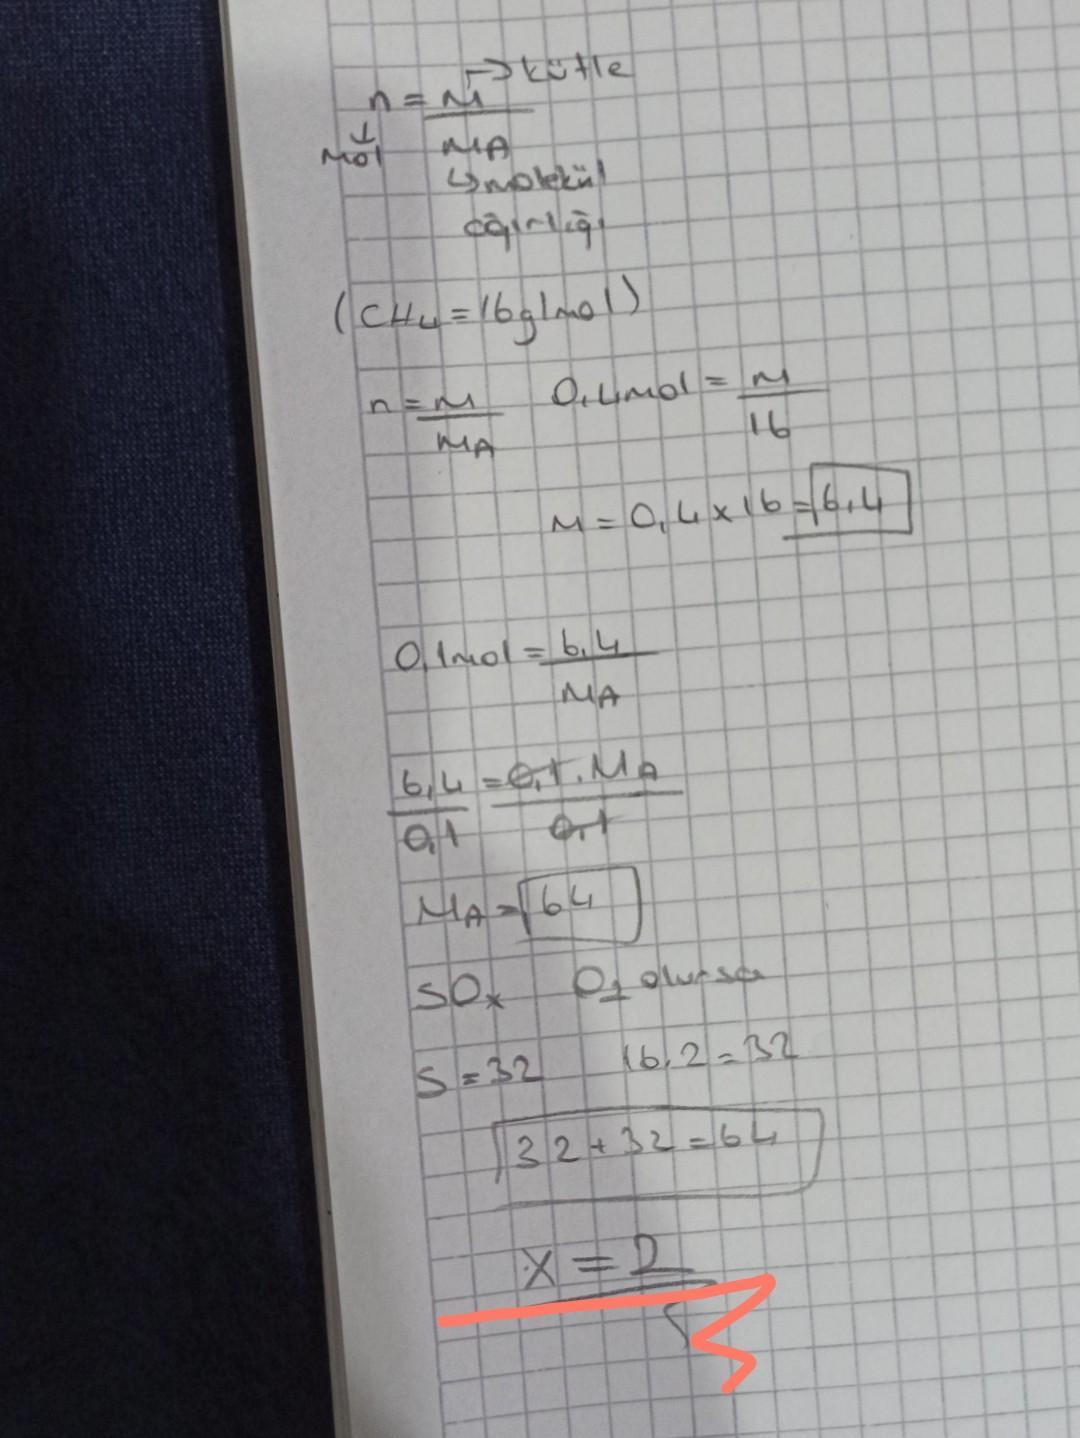 → kütle
n = m
mol MA
↳ molekül
ağırlığı
(CH4 = 16g/mol)
n = m 0,4mol = m
MA 16
m = 0,4 x 16 = 6,4
0,1mol = 6,4
MA
6,4 = 0,1 . MA
0,1 0,1
MA = 64
SOx O2 olursa
S = 32 16.2 = 32
32 + 32 = 64
x = 2